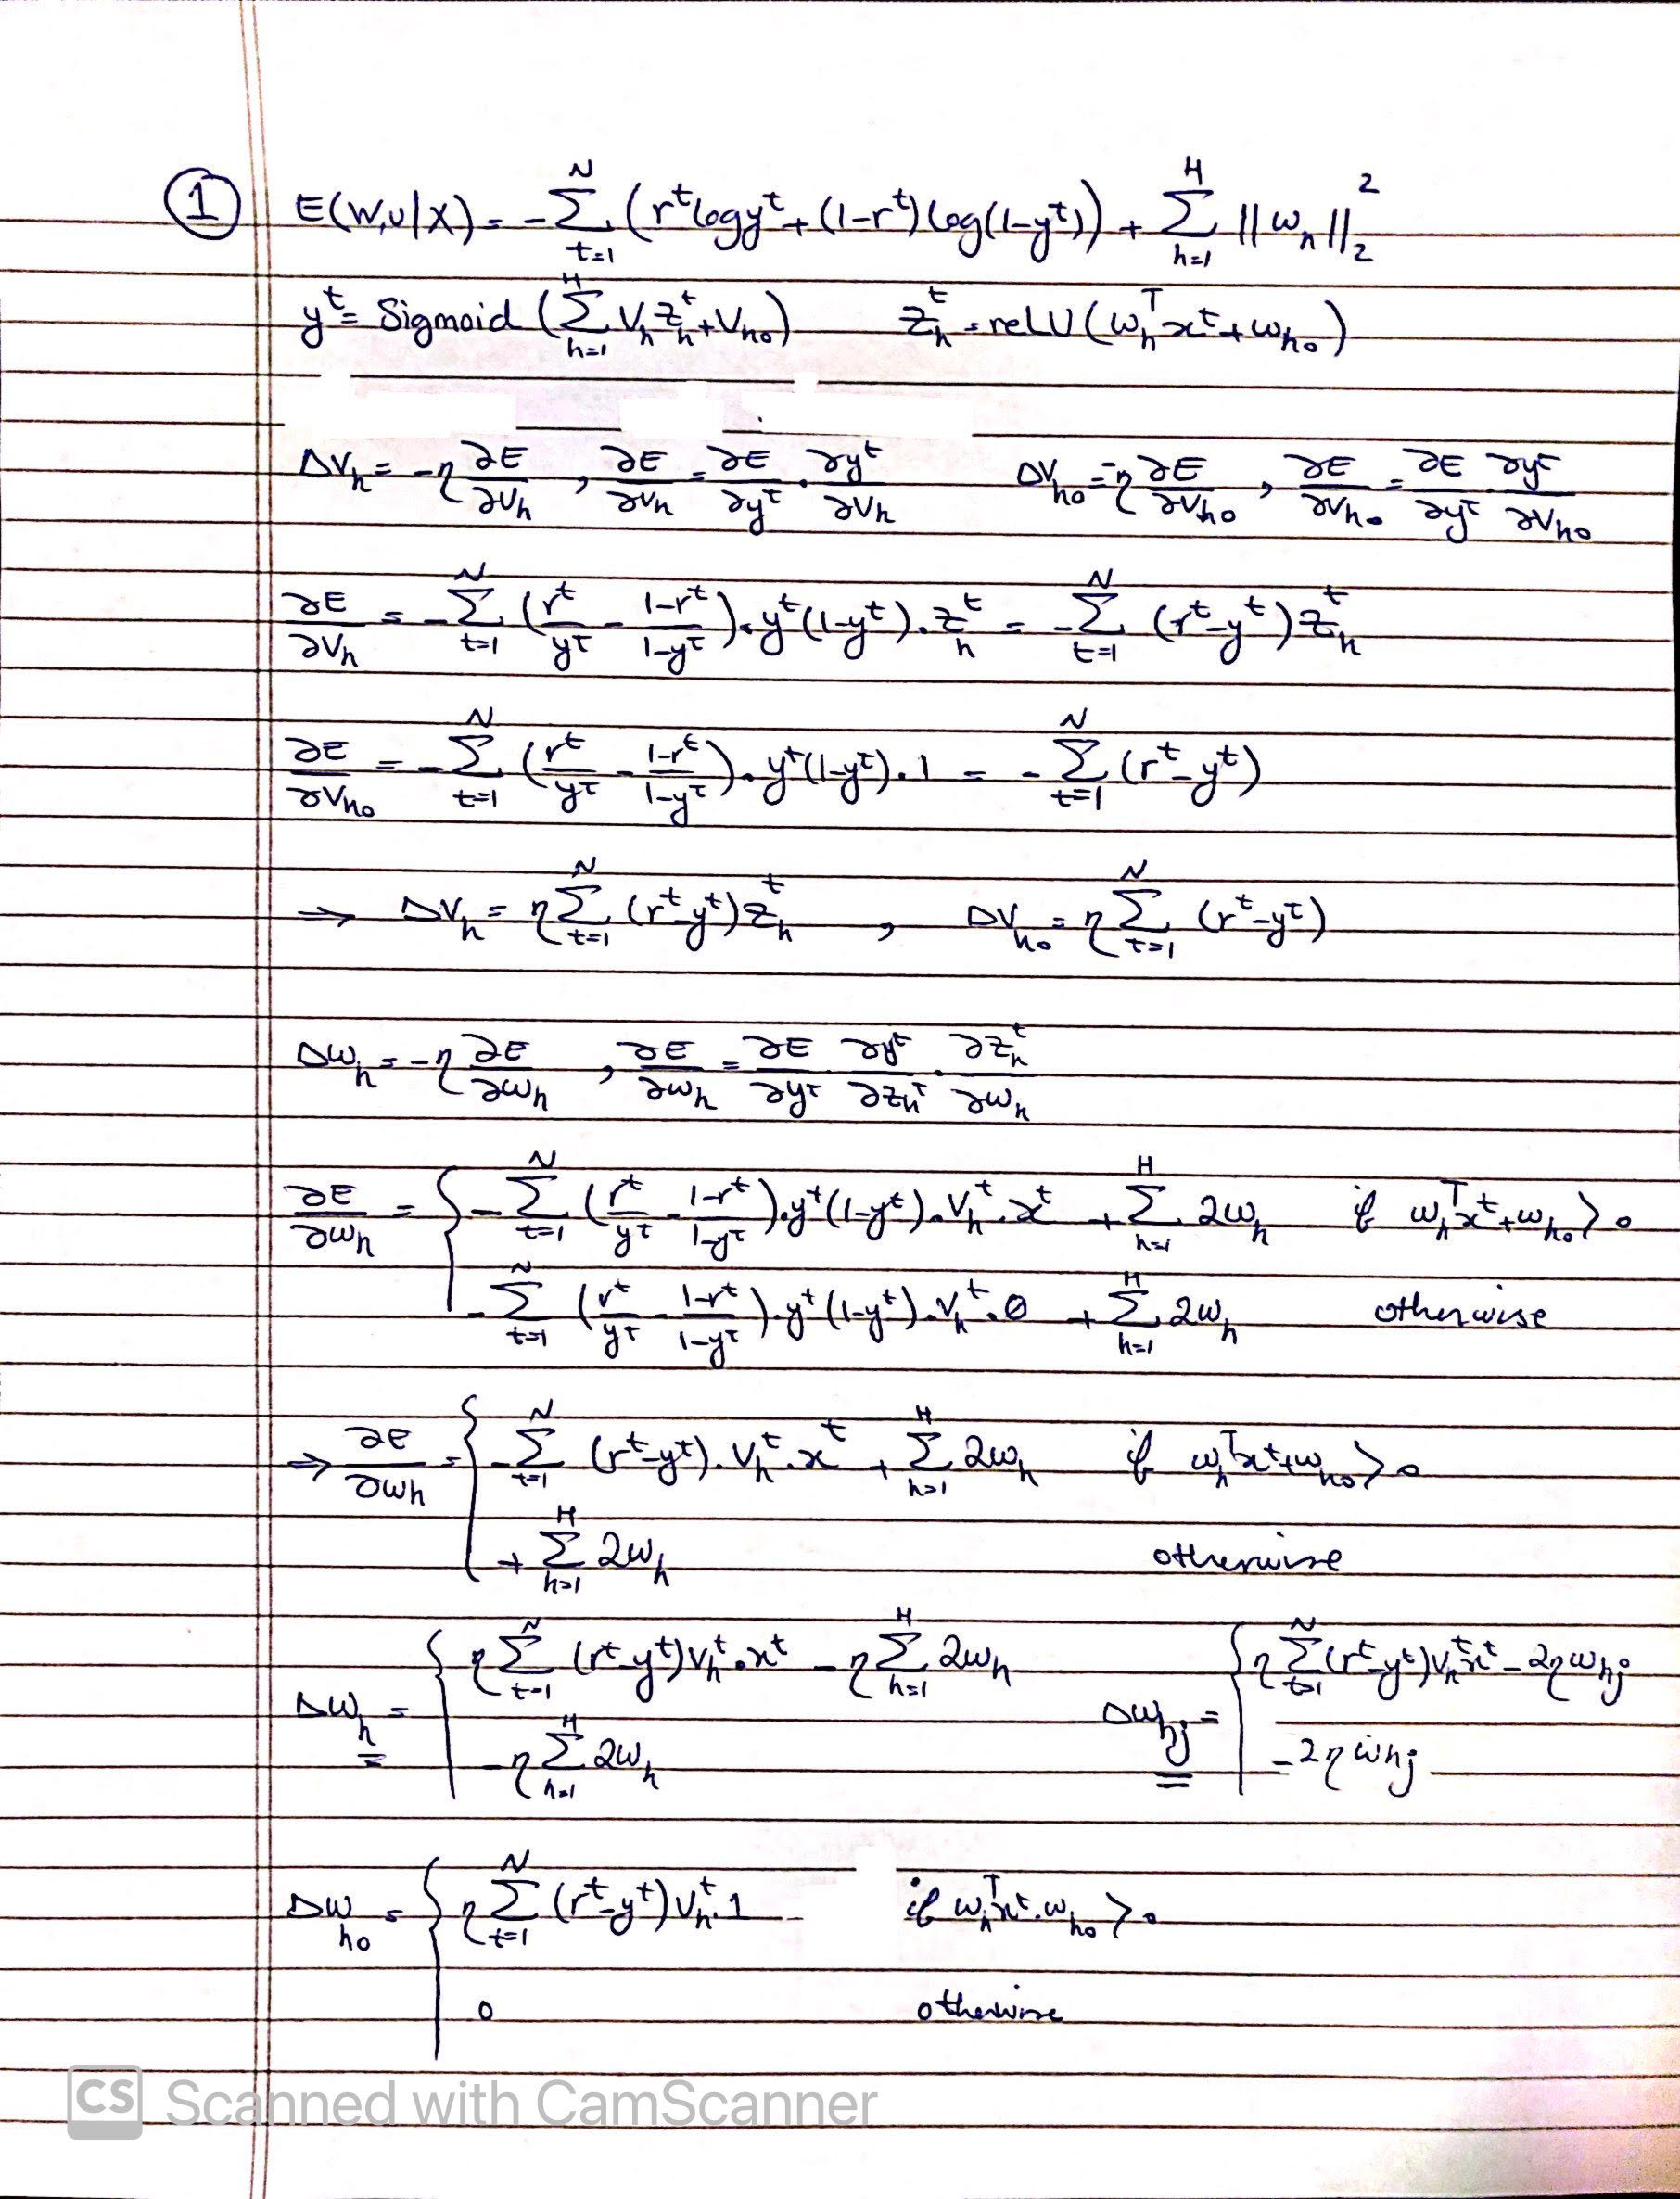 ① E(W,υ|X) = -∑_{t=1}^{N} (r^t log y^t + (1-r^t) log(1-y^t)) + ∑_{h=1}^{H} ||w_h||_2^2
y^t = Sigmoid (∑_{h=1}^{H} V_h z_h^t + V_{ho})   z_h^t = reLU (w_h^T x^t + w_{ho})
ΔV_h = -η ∂E/∂V_h , ∂E/∂V_h = ∂E/∂y^t · ∂y^t/∂V_h   ΔV_{ho} = -η ∂E/∂V_{ho} , ∂E/∂V_{ho} = ∂E/∂y^t · ∂y^t/∂V_{ho}
∂E/∂V_h = -∑_{t=1}^{N} (r^t/y^t - (1-r^t)/(1-y^t)) · y^t(1-y^t) · z_h^t = -∑_{t=1}^{N} (r^t-y^t) z_h^t
∂E/∂V_{ho} = -∑_{t=1}^{N} (r^t/y^t - (1-r^t)/(1-y^t)) · y^t(1-y^t) · 1 = -∑_{t=1}^{N} (r^t-y^t)
⇒ ΔV_h = η ∑_{t=1}^{N} (r^t-y^t) z_h^t , ΔV_{ho} = η ∑_{t=1}^{N} (r^t-y^t)
Δw_h = -η ∂E/∂w_h , ∂E/∂w_h = ∂E/∂y^t · ∂y^t/∂z_h^t · ∂z_h^t/∂w_h
∂E/∂w_h = { -∑_{t=1}^{N} (r^t/y^t - (1-r^t)/(1-y^t)) · y^t(1-y^t) · V_h^t · x^t + ∑_{h=1}^{H} 2w_h   if w_h^T x^t + w_{ho} > 0
-∑_{t=1}^{N} (r^t/y^t - (1-r^t)/(1-y^t)) · y^t(1-y^t) · V_h^t · 0 + ∑_{h=1}^{H} 2w_h   otherwise
⇒ ∂E/∂w_h = { -∑_{t=1}^{N} (r^t-y^t) · V_h^t · x^t + ∑_{h=1}^{H} 2w_h   if w_h^T x^t + w_{ho} > 0
+ ∑_{h=1}^{H} 2w_h   otherwise
Δw_h = { η ∑_{t=1}^{N} (r^t-y^t) V_h^t · x^t - η ∑_{h=1}^{H} 2w_h   Δw_{hj} = { η ∑_{t=1}^{N} (r^t-y^t) V_h^t x^t - 2η w_{hj}
-η ∑_{h=1}^{H} 2w_h   -2η w_{hj}
Δw_{ho} = { η ∑_{t=1}^{N} (r^t-y^t) V_h^t · 1   if w_h^T x^t . w_{ho} > 0
0   otherwise
CS Scanned with CamScanner